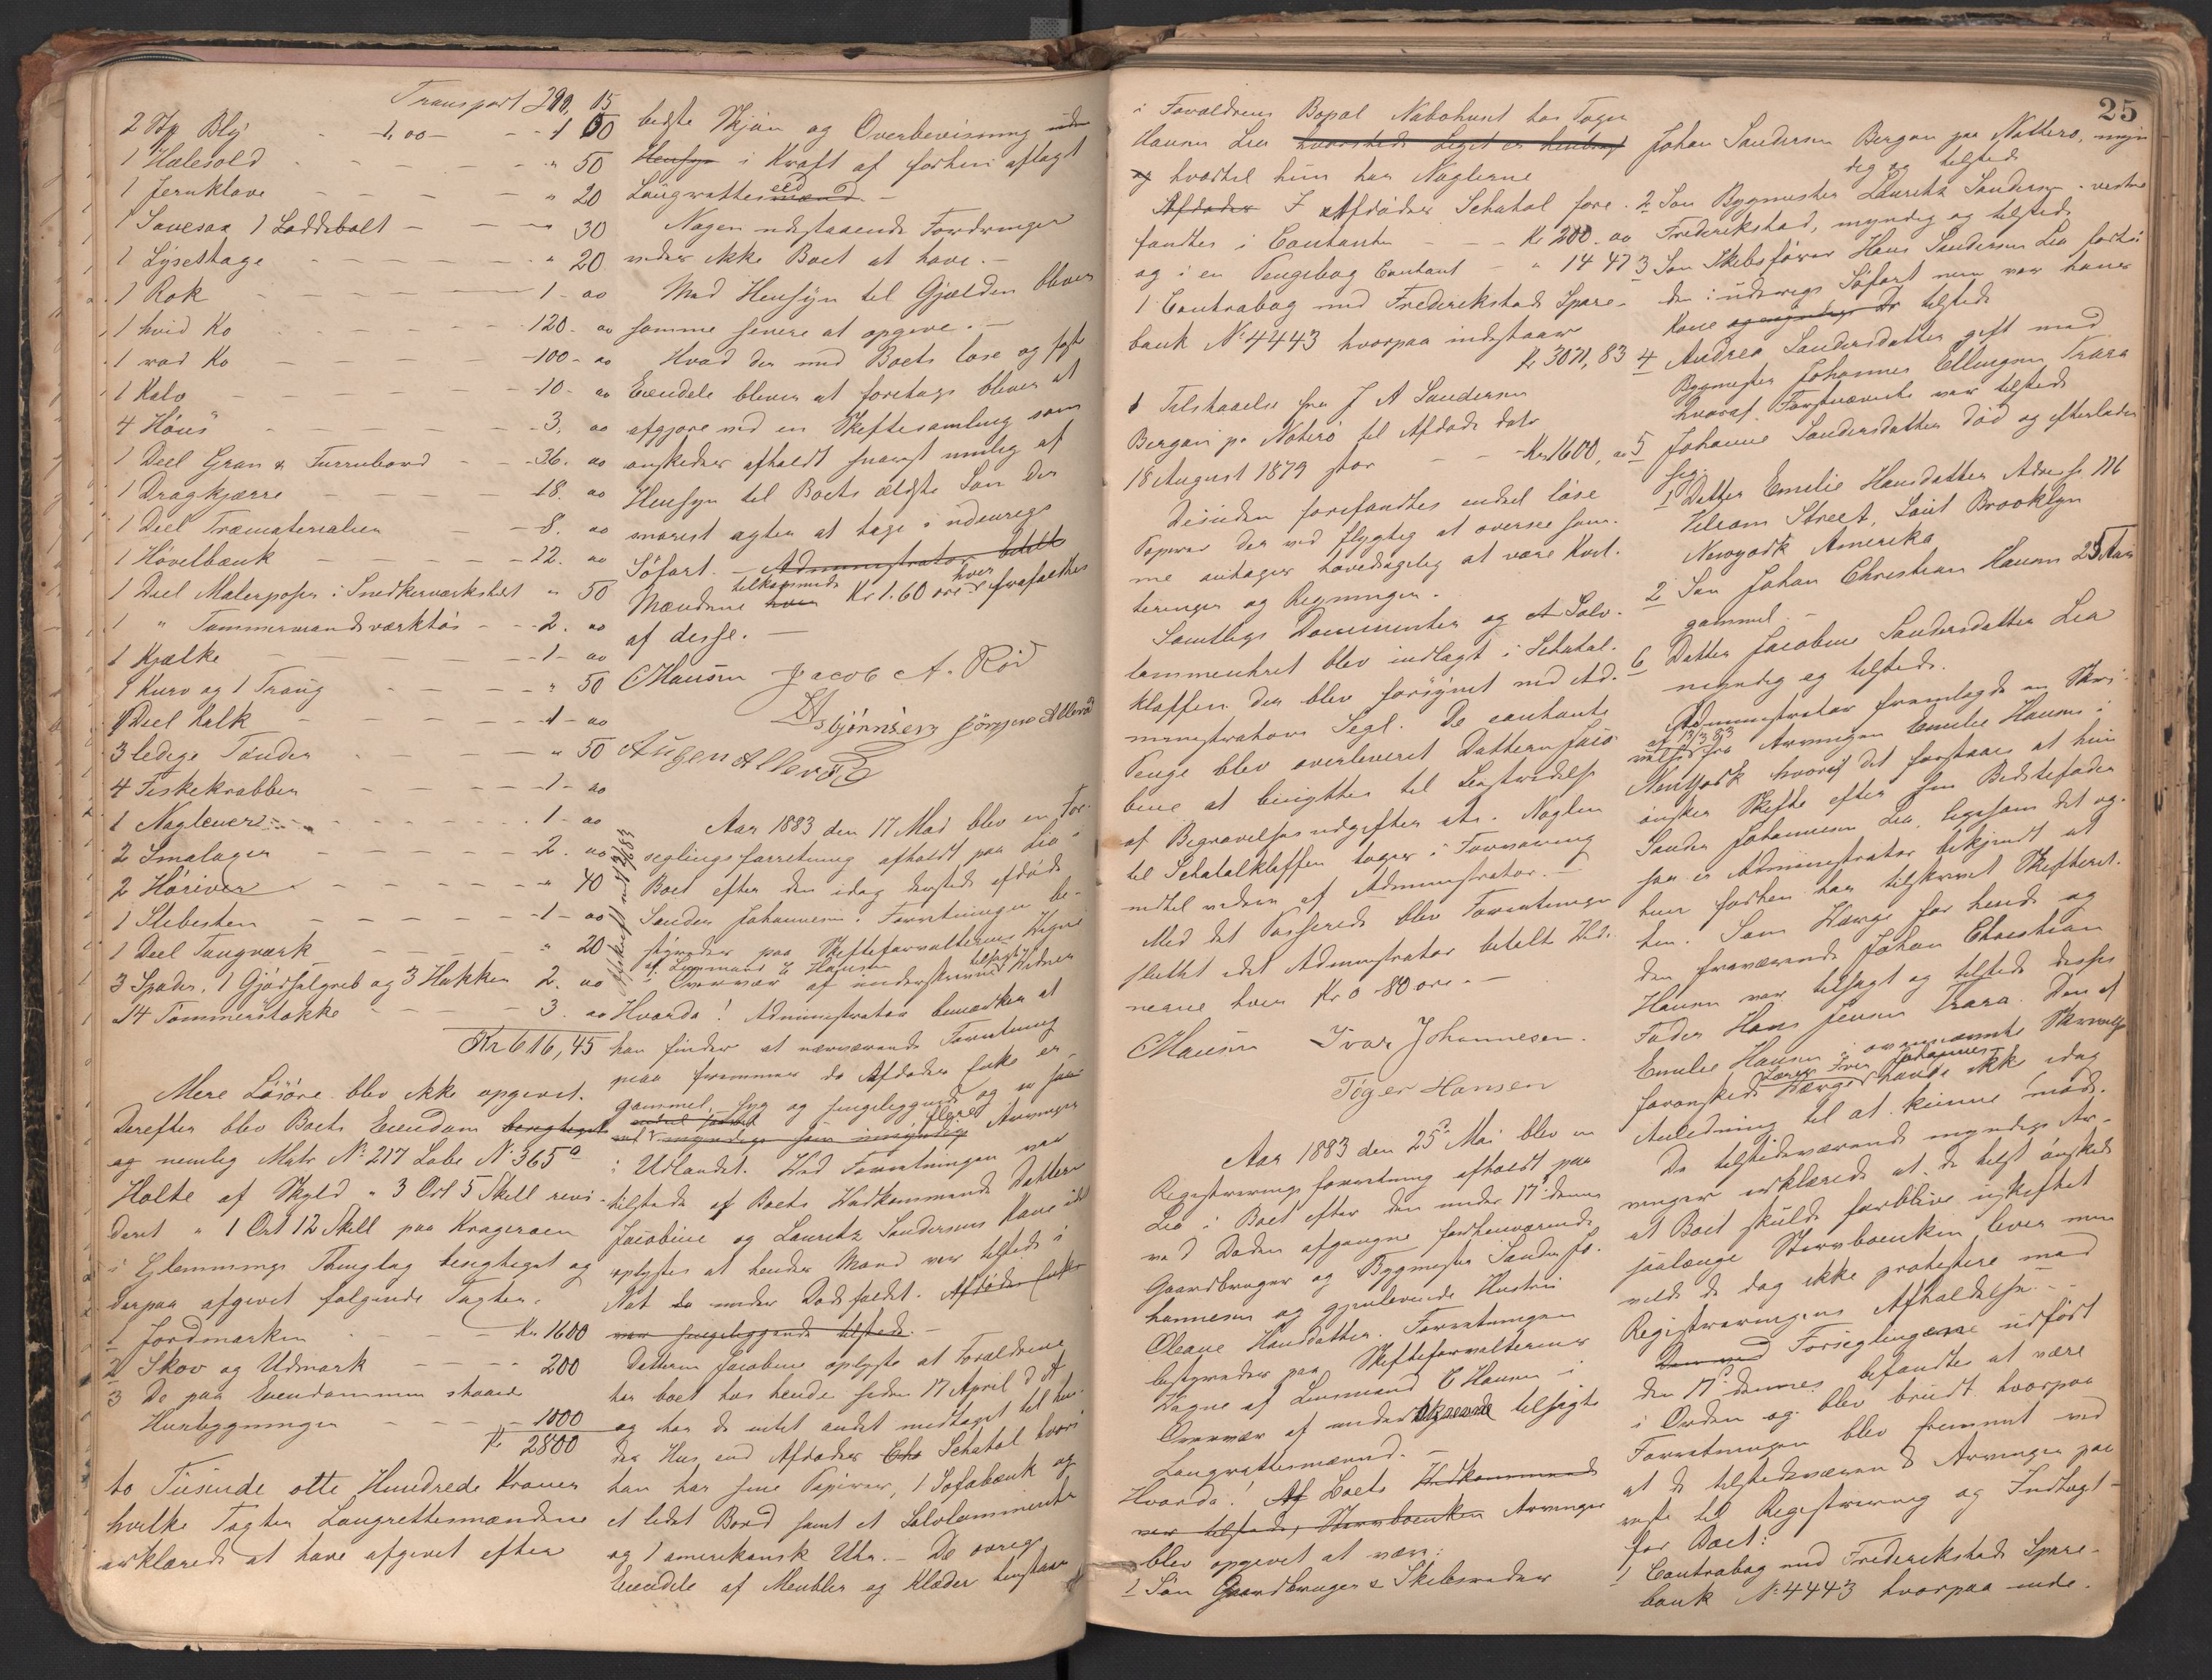 Transport 290, 05
2 Stk Bly - 1, 00 - - - 1 00
1 Hælesold - - - " 50
1 Jernklave - - - " 20
1 Savesax 1 Loddebolt - - - " 30
1 Lysestage - - - " 20
1 Rok - - - 1 - 00
1 hvid Ko - - - 120 - 00
1 rød Ko - - - 100 - 00
1 Kalv - - - 10 - 00
4 Høns - - - 3, 00
1 Deel Gran & Furrubord - - 36. 00
1 Dragkjærre - - - 18. 00
1 Deel Træmaterialier - - 8. 00
1 Høvelbænk - - - 12. 00
1 Deel Malerpøser i Snedkerværkstedet " 50
1 " Tømmermandsværktøi - - 2. 00
1 Kjælke - - - 1 - 00
1 Kurv og 1 Traug - - - " 50
1 Deel Kalk - - - 1 - 00
3 ledige Tønder - - - " 50
4 Fiskekrabber - - - 1 - 00
1 Naglever - - - 1 - 00
2 Smalager - - - 2. 00
2 Høriver - - - " 40
1 Slibesten - - - 1 - 00
1 Deel Taugværk - - - " 20
3 Spader, 1 Gjødselgreb og 3 Hakker 2. 00
14 Tømmerstokke - - - 3. 00
Kr 616, 45
Mere Løsøre blev ikke opgivet.
Derefter blev Boets Eiendom besigtiget
og nemlig Matr No 217 Løbe No 365 a
Holte af Skyld " 3 Ort 5 Skill revi-
deret " 1 Ort 12 Skill paa Kragerøen
i Glemminge Thinglag besigtiget og
derpaa afgivet følgende Taxter.
1 Jordmarken - - - Kr. 1600
2 Skov og Udmark - - - 200
3 De paa Eiendommen staaende
Husbygninger - - - 1000
Kr 2800
to Tusinde otte Hundrede Kroner
hvilke Taxter Laugrettesmændene
erklærede at have afgivet efter
bedste Skjøn og Overbevisning uden
Hensyn i Kraft af forhen aflagt
Laugrettesmænd eed. -
Nogen udestaaende Fordringer
vides ikke Boet at have. -
Med Hensyn til Gjælden bliver
samme senere at opgive. -
Hvad der med Boets løse og faste
Eiendele bliver at foretage bliver at
afgjøre ved en Skiftesamling som
ønskedes afholdt snarest mulig af
Hensyn til Boets ældste Søn der
snarest agter at tage i udenrigs
Søfart. - Administrator betalte
Mændene tilkommende hver Kr 1.60 øre hver frafaldtes
af disse. -
CHansen Jacob A. Rød
Asbjørnsen Jørgen Allerød
Augen Allerød
Afskrift ud 13/6 83
Aar 1883 den 17 Mai blev en For-
seglingsforretning afholdt paa Lio i
Boet efter den idag dersteds afdøde
Sander Johannesen. Forretningen be-
styredes paa Skifteforvalterens Vegne
af Lensmand C Hansen
i Overvær af underskrevne tilsagte Vidner
Hvorda! Administrator bemærker at
han finder at nærværende Forretning
maa fremmes da Afdødes Enke er
gammel, syg og sengeliggende og er saa
vel myndige som umyndig flere Arvinger
i Udlandet. Ved Forretningen var
tilstede af Boets Vedkommende Datteren
Jacobine og Lauritz Sandersens Kone idet
oplystes at hendes Mand var tilstede i
Nat da under Dødsfaldet. Afdødes Enke
var sengeliggende tilstede. -
Datteren Jacobine oplyste at Forældrene
har boet hos hende siden 17 April d A
og har de intet andet medtaget til hen-
des Hus end Afdødes Chat Schatol hvori
han har sine Papirer, 1 Sofabænk og
et lidet Bord samt et Sølvlommeuhr
og 1 amerikansk Uhr. - De øvrige
Eiendele af Meubler og Klæder henstaar
25
i Forældrenes Bopæl Nabohuset hos Toger
Hansen Lea hvorsteds Liget er henbragt
og hvortil hun har Nøglerne
Afdødes I Afdødes Schatol fore-
fandtes i Contanter - - - Kr 200. 00
og i en Pengebog Contant - " 14 47
1 Contrabog med Frederikstads Spare-
bank No 4443 hvorpaa indestaar
Kr 3071, 83
1 Tilstaaelse fra J A Sandersen
Bergan p. Nøterø til Afdøde dato
18 August 1879 stor - - Kr 1600, 00
Desuden forefandtes endel løse
Papirer der ved flygtig at oversee sam-
me antages hovedsagelig at være Kvit-
teringer og Regninger.
Samtlige Documenter og et Sølv-
lommeuhret blev indlagt i Schatol-
klaffen der blev forsynet med Ad-
ministrators Segl. De contante
Penge blev overleveret Datteren Jaco-
bine at benyttes til Bestridelse
af Begravelsesudgifter etc. Nøglen
til Schatolklaffen toges i Forvaring
indtil videre af Administrator. -
Med det Passerede blev Forretningen
sluttet idet Administrator betalte Vid-
nerne hver Kr 0 80 øre. -
CHansen Ivar Johannesen.
Tøger Hansen
Aar 1883 den 25de Mai blev en
Registreringsforretning afholdt paa
Lea i Boet efter den under 17 dennes
ved Døden afgangne forhenværende
Gaardbruger og Bygmester Sander Jo-
hannesen og gjenlevende Hustru
Oleane Hansdatter. Forretningen
bestyredes paa Skifteforvalterens
Vegne af Lensmand C Hansen i
Overvær af underskrevne tilsagte
Laugrettesmænd.
Hvorda! Af Boets Vedkommende
var tilstede, Stervboenken Arvinger
blev opgivet at være:
1 Søn Gaardbruger & Skibsreder
Johan Sandersen Bergan paa Nøtterø, myn-
dig og tilstede
2 Søn Bygmester Lauritz Sandersen - vestre
Frederikstad, myndig og tilstede
3 Søn Skibsfører Hans Sandersen Lea fortti-
den i udenrigs Søfart men var hans
Kone og myndige er tilstede
4 Andrea Sandersdatter gift med
Bygmester Johannes Ellingsen Trara
hvoraf Førstnævnte var tilstede
5 Johanne Sandersdatter død og efterlader
sig:
1 Datter Emilie Hansdatter Adresse 116
Street, Brooklyn
Newyork Amerika
2 Søn Johan Christian Hansen 25 Aar
gammel -
6 Datter Jacobine Sandersdatter Lea
myndig og tilstede.
Administrator fremlagde en Skri-
velse af 13/3 83 fra Arvingen Emilie Hansen i
NewYork hvoraf det forstaaes at hun
ønsker Skifte efter sin Bedstefader
Sander Johannesen Lea, ligesom det og-
saa er Administrator bekjendt at
hun forhen har tilskrevet Skifteret-
ten. Som Værge for hende og
den fraværende Johan Christian
Hansen var tilsagt og tilstede disses
Fader Hans Jensen Trara. Den af
Emilie Hansen i ovennævnte Skrivelse
forønskede Værge Lærer Iver Johannesen havde ikke idag
Anledning til at kunne møde.
De tilstedeværende myndige Ar-
vinger erklærede at de helst ønskede
at Boet skulde forblive uskiftet
saalænge Stervboenken lever men
vilde de dog ikke protestere mod
Registreringens Afholdelse. -
Den ved Forseglingerne udført
den 17 dennes befandtes at være
i Orden og blev brudt hvorpaa
Forretningen blev fremmet ved
at de tilstedeværende Arvinger paa-
viste til Registrering og Indtægt
for Boet:
1 Contrabog med Frederikstads Spare-
bank No 4443 hvorpaa inde-